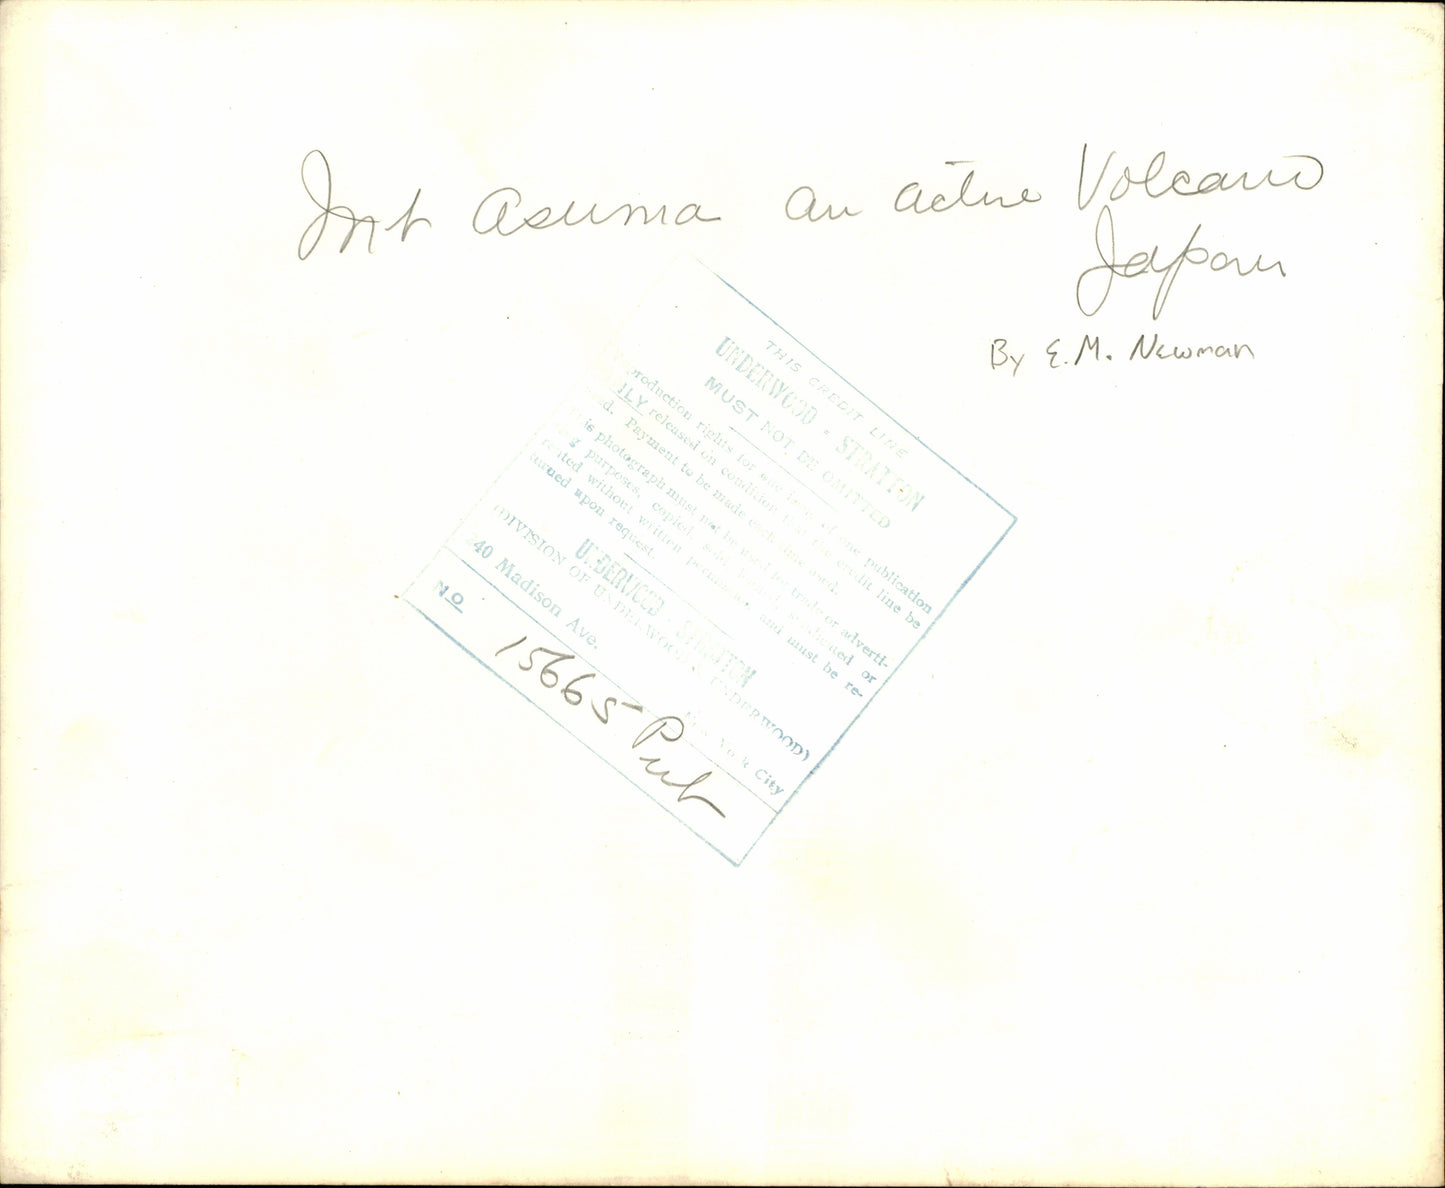 Mt Asuma an active Volcano
Japan
By E.M. Newman
THIS CREDIT LINE
UNDERWOOD - STRATTON
MUST NOT BE OMITTED
production rights for one time of one publication
ONLY released on condition that the credit line be
Payment to be made each time used.
This photograph must not be used for trade or adverti-
purposes, copied, syndicated or
rented without written permission, and must be re-
turned upon request.
UNDERWOOD - STRATTON
(DIVISION OF UNDERWOOD & UNDERWOOD)
240 Madison Ave. New York City
No 15665 Pub